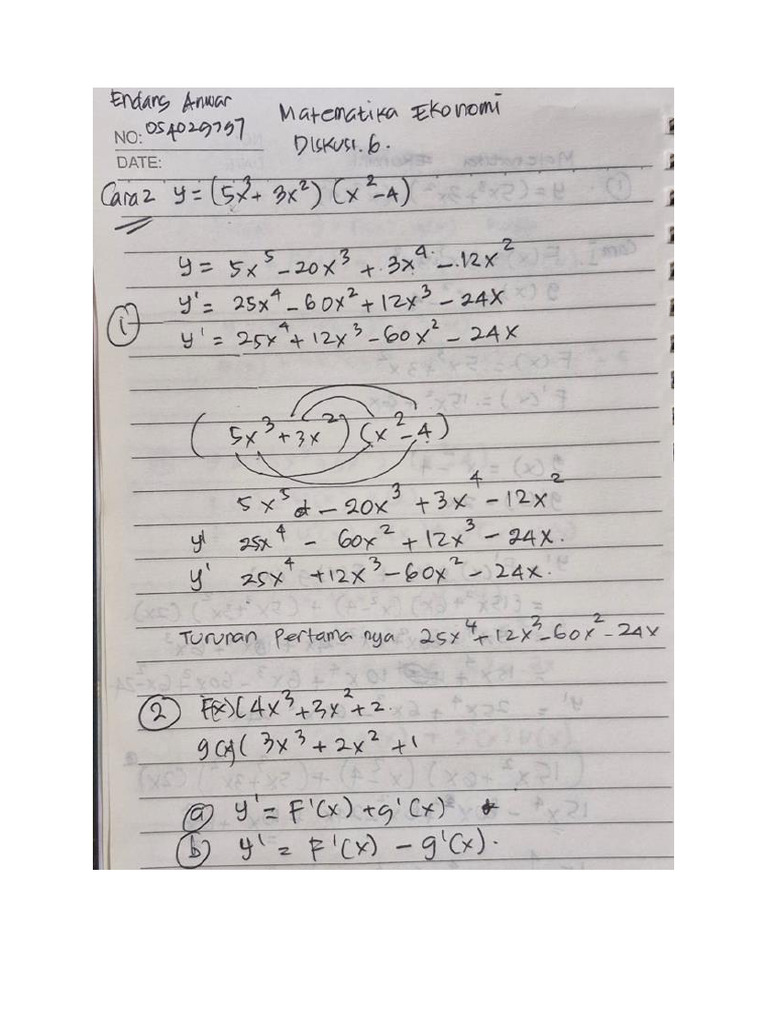 Endang Anwar
Matematika Ekonomi
NO: 054029757
Diskusi.6.
DATE:
Cara 2 y = (5x³ + 3x²) (x² - 4)
y = 5x⁵ - 20x³ + 3x⁴ - 12x²
① y' = 25x⁴ - 60x² + 12x³ - 24x
y' = 25x⁴ + 12x³ - 60x² - 24x
(5x³ + 3x²) (x² - 4)
5x⁵ - 20x³ + 3x⁴ - 12x²
y' 25x⁴ - 60x² + 12x³ - 24x.
y' 25x⁴ + 12x³ - 60x² - 24x.
Turunan Pertama nya 25x⁴ + 12x³ - 60x² - 24x
② F(x) (4x³ + 3x² + 2.
g(x) ( 3x³ + 2x² + 1
ⓐ y' = F'(x) + g'(x)
ⓑ y' = F'(x) - g'(x).